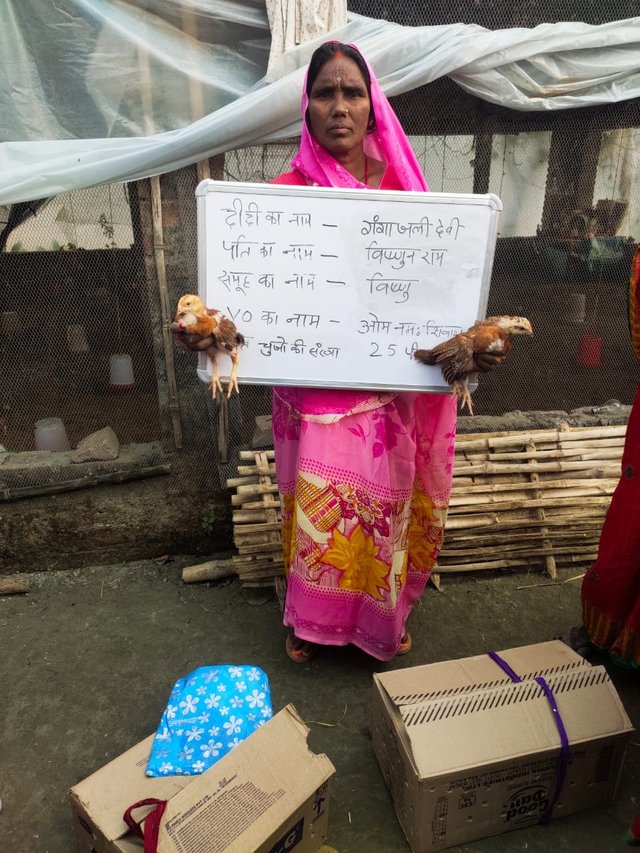 दीदी का नाम — गंगाजली देवी
पति का नाम — विष्णुन राम
समूह का नाम — विष्णु
VO का नाम — ओम नमः शिवाय
चुजो की संख्या 25 पी
Good
Day